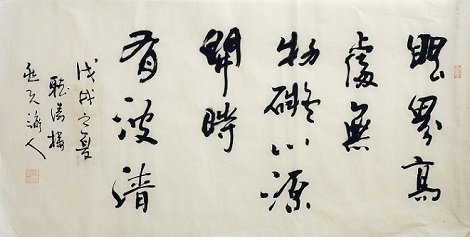 眼界高
處無
物礙心源
開時
有波清
戊戌之夏
聽濤樓
人